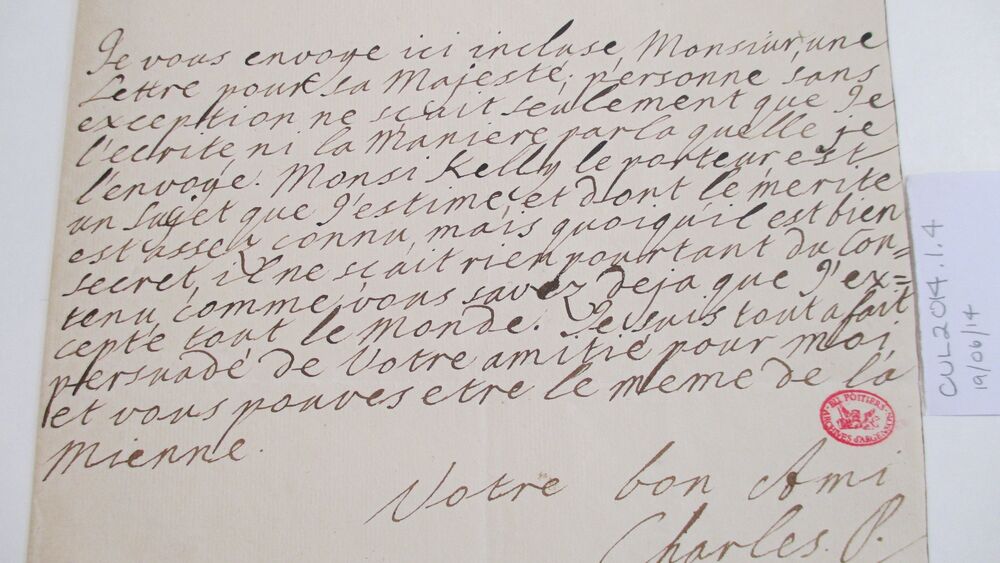 Je vous envoye ici incluse, Monsiur, une
Lettre pour sa Majesté; personne sans
exception ne sçait seulement que Je
l'ecrite, ni la Maniere par la quelle je
l'envoye. Monsi Kelly le porteur est
un sujet que J'estime, et dont le merite
est assez connu, mais quoiquil est bien
secret, il ne sçait rien pourtant du Con=
tenu comme vous savez deja que J'ex=
cepte tout le Monde. Je suis tout a fait
persuadé de Votre amitié pour moi
et vous pouves etre le meme de la
Mienne.
Votre bon Ami
Charles. P.
BU. POITIERS
ARCHIVES d'ARGENSON
CUL2014.1.4
19/06/14